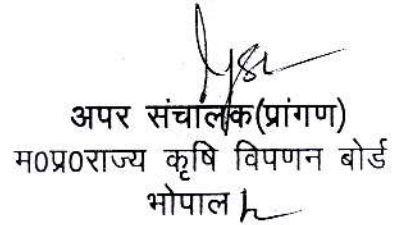 अपर संचालक(प्रांगण)
म0प्र0राज्य कृषि विपणन बोर्ड
भोपाल